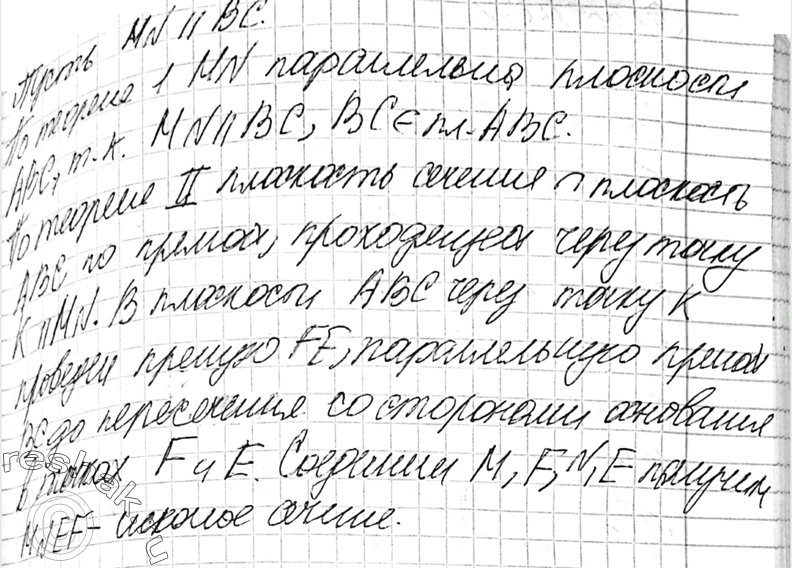 Пусть MN || BC.
По теореме 1 MN параллельна плоскости
ABC, т.к. MN || BC, BC ∈ пл. ABC.
По теореме II плоскость сечения ∩ плоскость
ABC по прямой, проходящей через точку
K || MN. В плоскости ABC через точку K
проведем прямую FE, параллельную прямой
BC до пересечения со сторонами основания
в точках F и E. Соединим M, F, N, E получим
MNEF - искомое сечение.
reshak